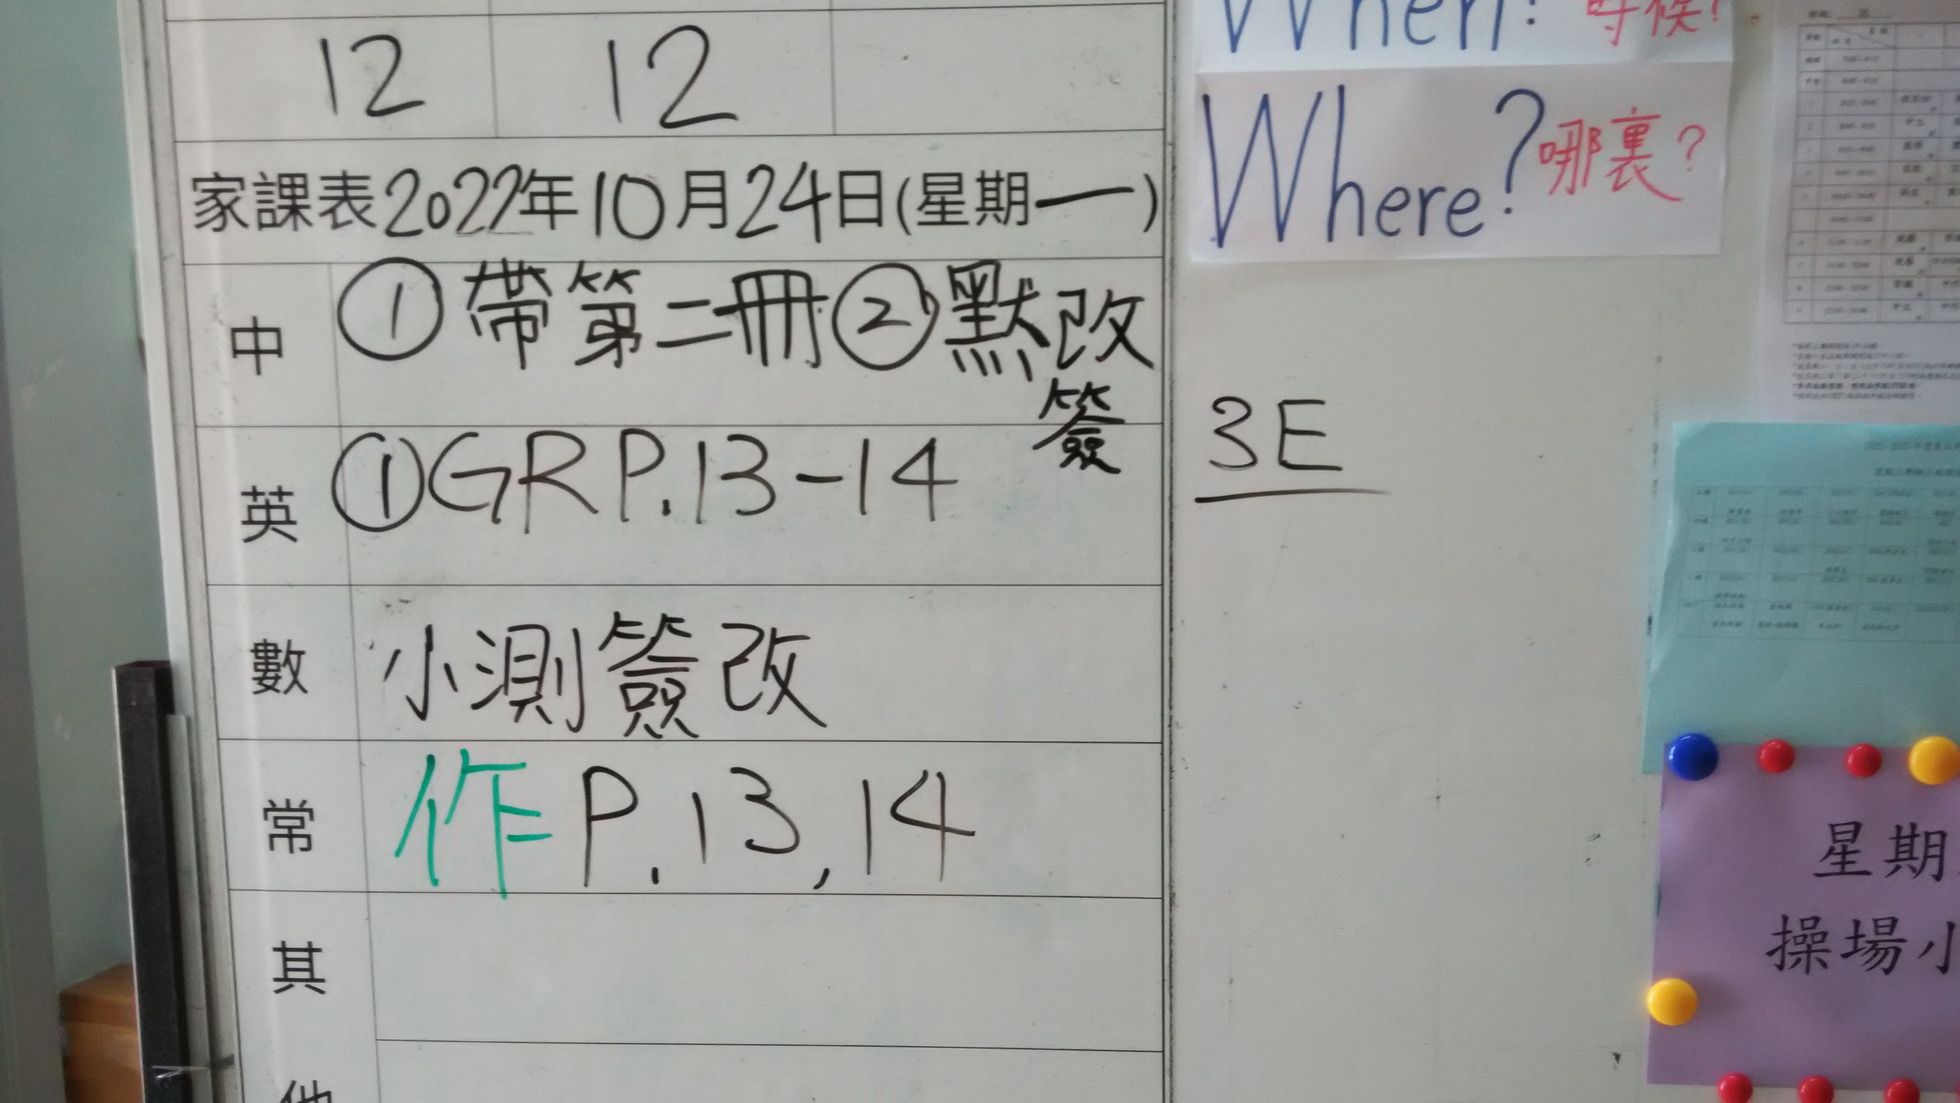 12 12
家課表2022年10月24日(星期一)
中 ①帶第二冊②默改
簽
英 ①GR P.13-14
數 小測簽改
常 作 P.13,14
其
他
When? 時候?
Where? 哪裏?
3E
星期
操場小